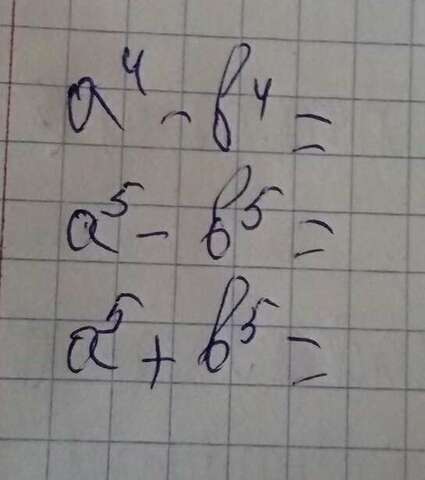 a⁴ - b⁴ =
a⁵ - b⁵ =
a⁵ + b⁵ =